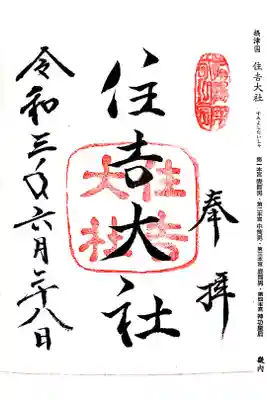 摂津国 住吉大社 すみよしたいしゃ 第一本宮 底筒男・第二本宮 中筒男・第三本宮 表筒男・第四本宮 神功皇后 畿内
奉拝
住吉大社
住吉大社
令和三年六月二十八日